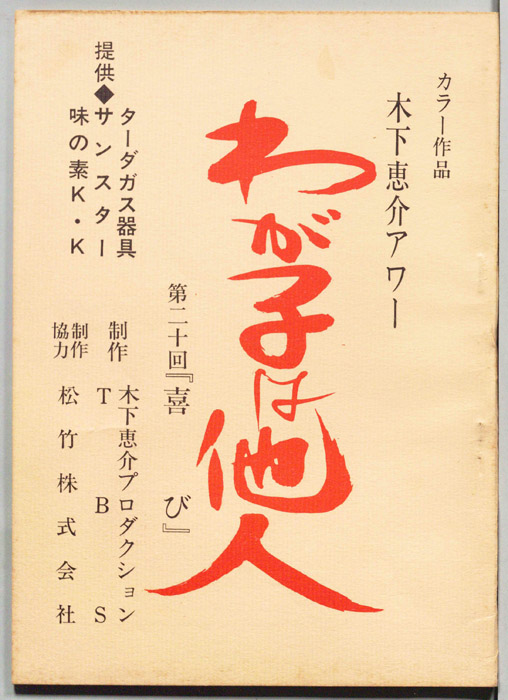 カラー作品
木下恵介アワー
わが子は他人
第二十回『喜び』
提供◆
ターダガス器具
サンスター
味の素K・K
制作
木下恵介プロダクション
TBS
制作協力
松竹株式会社